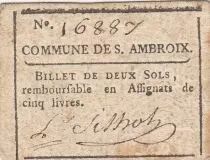 No. 16887
COMMUNE DE S. AMBROIX.
BILLET DE DEUX SOLS,
remboursable en Assignats de
cinq livres.